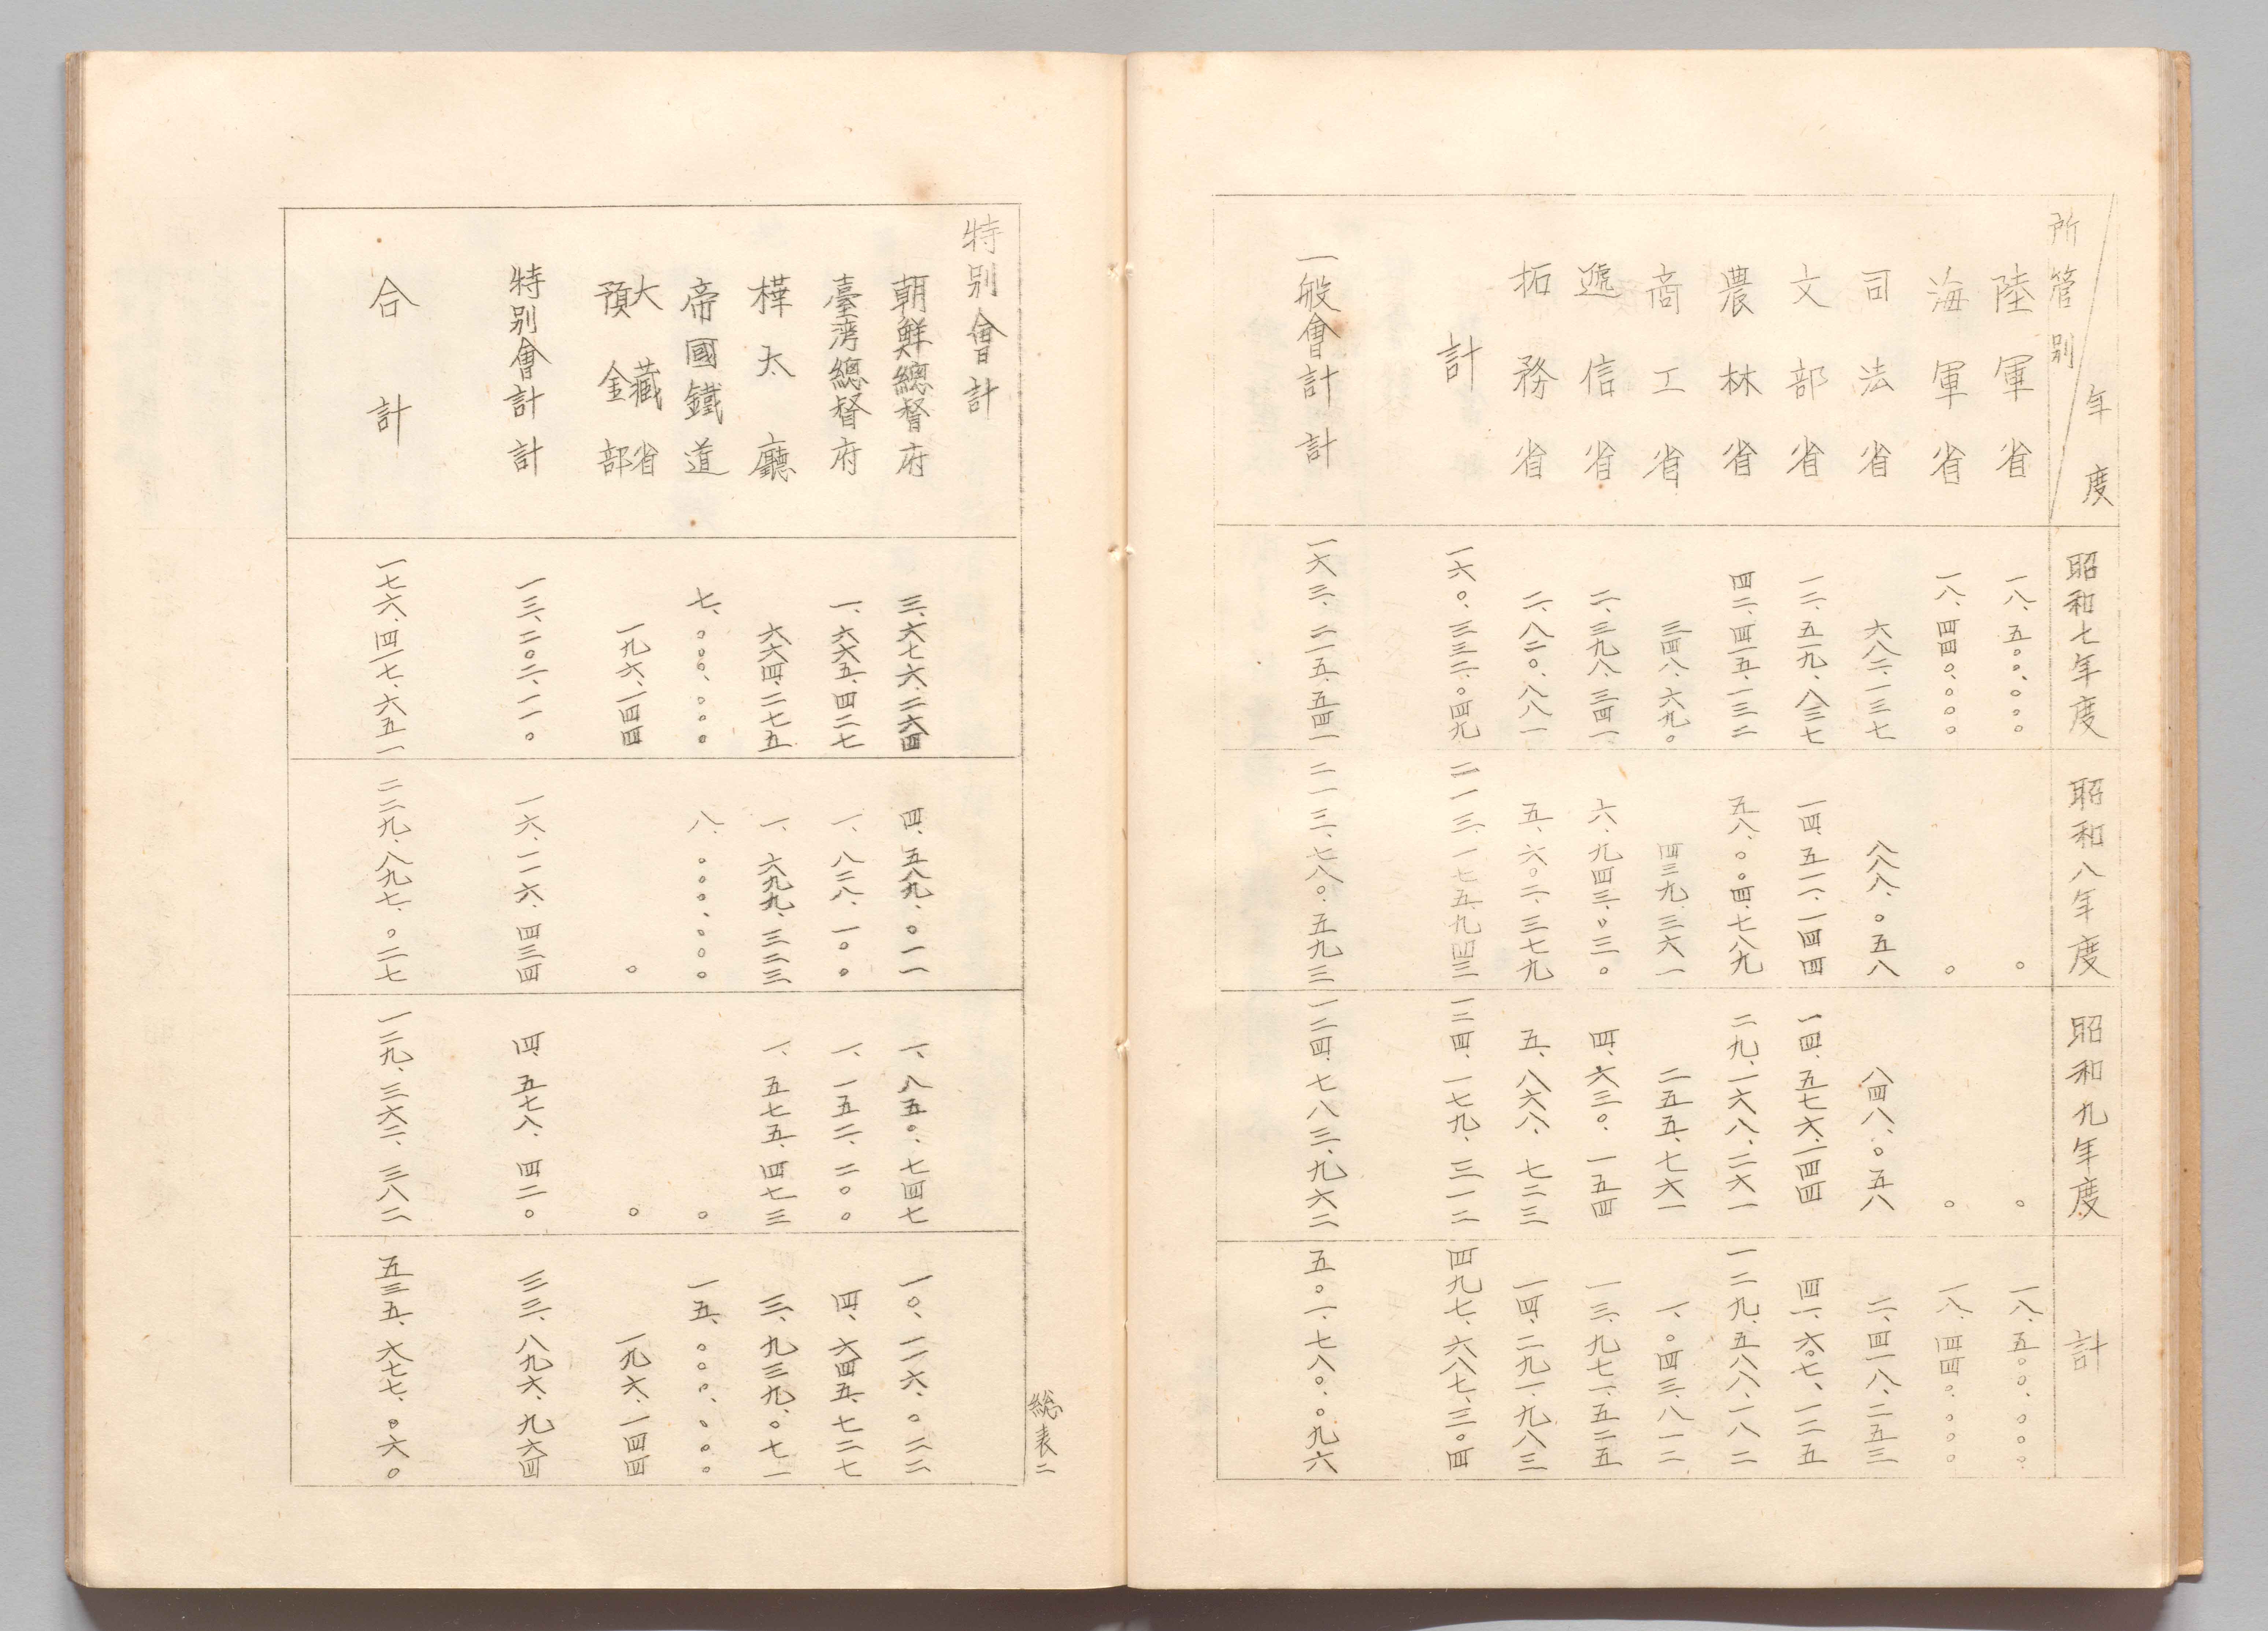 年度
所管別
昭和七年度 昭和八年度 昭和九年度 計
陸軍省 一八、五〇〇、〇〇〇 〇 〇 一八、五〇〇、〇〇〇
海軍省 一八、四四〇、〇〇〇 〇 〇 一八、四四〇、〇〇〇
司法省 六八二、一三七 八八八、〇五八 八四八、〇五八 二、四一八、二五三
文部省 一二、五一九、八三七 一四、五一一、一四四 一四、五七六、一四四 四一、六〇七、一二五
農林省 四二、四一五、一三二 五八、〇〇四、七八九 二九、一六八、二六一 一二九、五八八、一八二
商工省 三四八、六九〇 四三九、三六一 二五五、七六一 一、〇四三、八一二
遞信省 二、三九八、三四一 六、九四三、〇三〇 四、六三〇、一五四 一三、九七一、五二五
拓務省 二、八二〇、八八一 五、六〇二、三七九 五、八六八、七二三 一四、二九一、九八三
計 一六〇、三三二、〇四九 二一三、一七五、九四三 一二四、一七九、三一二 四九七、六八七、三〇四
一般會計計 一六三、二一五、五四一 二一三、七八〇、五九三 一二四、七八三、九六二 五〇一、七八〇、〇九六
総表二
特別會計
朝鮮總督府 三、六七六、二六四 四、五八九、〇一一 一、八五〇、七四七 一〇、一一六、〇二二
臺湾總督府 一、六六五、四二七 一、八二八、一〇〇 一、一五二、二〇〇 四、六四五、七二七
樺太廳 六六四、二七五 一、六九九、三二三 一、五七五、四七三 三、九三九、〇七一
帝國鐵道 七、〇〇〇、〇〇〇 八、〇〇〇、〇〇〇 〇 一五、〇〇〇、〇〇〇
大藏省
預金部 一九六、一四四 〇 〇 一九六、一四四
特別會計計 一三、二〇二、一一〇 一六、一一六、四三四 四、五七八、四二〇 三三、八九六、九六四
合計 一七六、四一七、六五一 二二九、八九七、〇二七 一二九、三六二、三八二 五三五、六七七、〇六〇